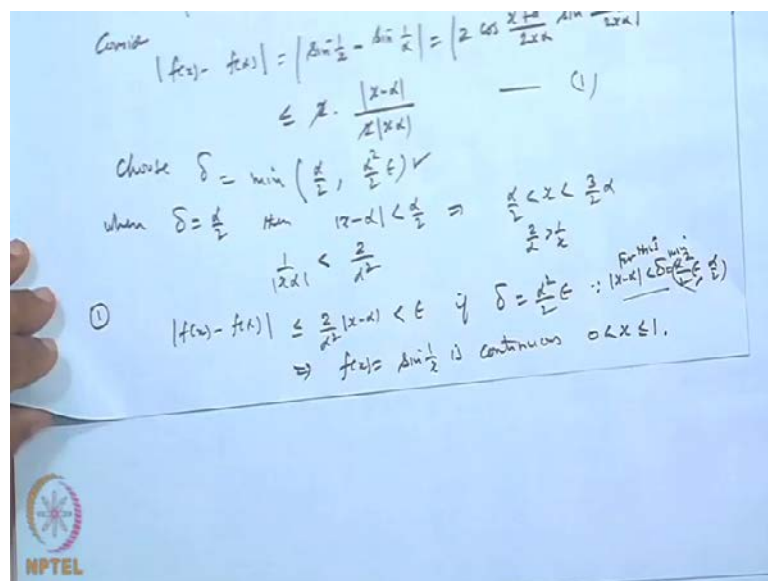 Consider
|f(x) - f(α)| = |sin 1/x - sin 1/α| = |2 cos x+α/2xα sin /2xα|
≤ 2 · |x-α| / 2|xα| — (1)
Choose δ = min (α/2, α²/2 ε) ✓
when δ = α/2 then |x-α| < α/2 ⇒ α/2 < x < 3/2 α
1/|xα| < 2/α² 2/α > 1/x
① |f(x) - f(α)| ≤ 2/α² |x-α| < ε if δ = α²/2 ε ∵ For this |x-α| < δ = min (α²/2 ε, α/2)
⇒ f(x) = sin 1/x is continuous 0 < x ≤ 1.
NPTEL